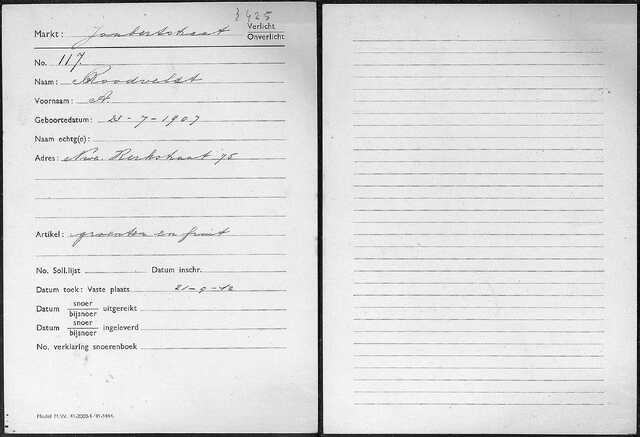 3425
Markt: Joubertstraat
Verlicht
Onverlicht
No. 117.
Naam: Roodvelst
Voornaam: A.
Geboortedatum: 28-7-1907
Naam echtg(e):
Adres: Nwe. Kerkstraat 75
Artikel: groenten en fruit
No. Soll.lijst Datum inschr.
Datum toek: Vaste plaats 21-9-42
Datum snoer bijsnoer uitgereikt
Datum snoer bijsnoer ingeleverd
No. verklaring snoerenboek
Model M.W.